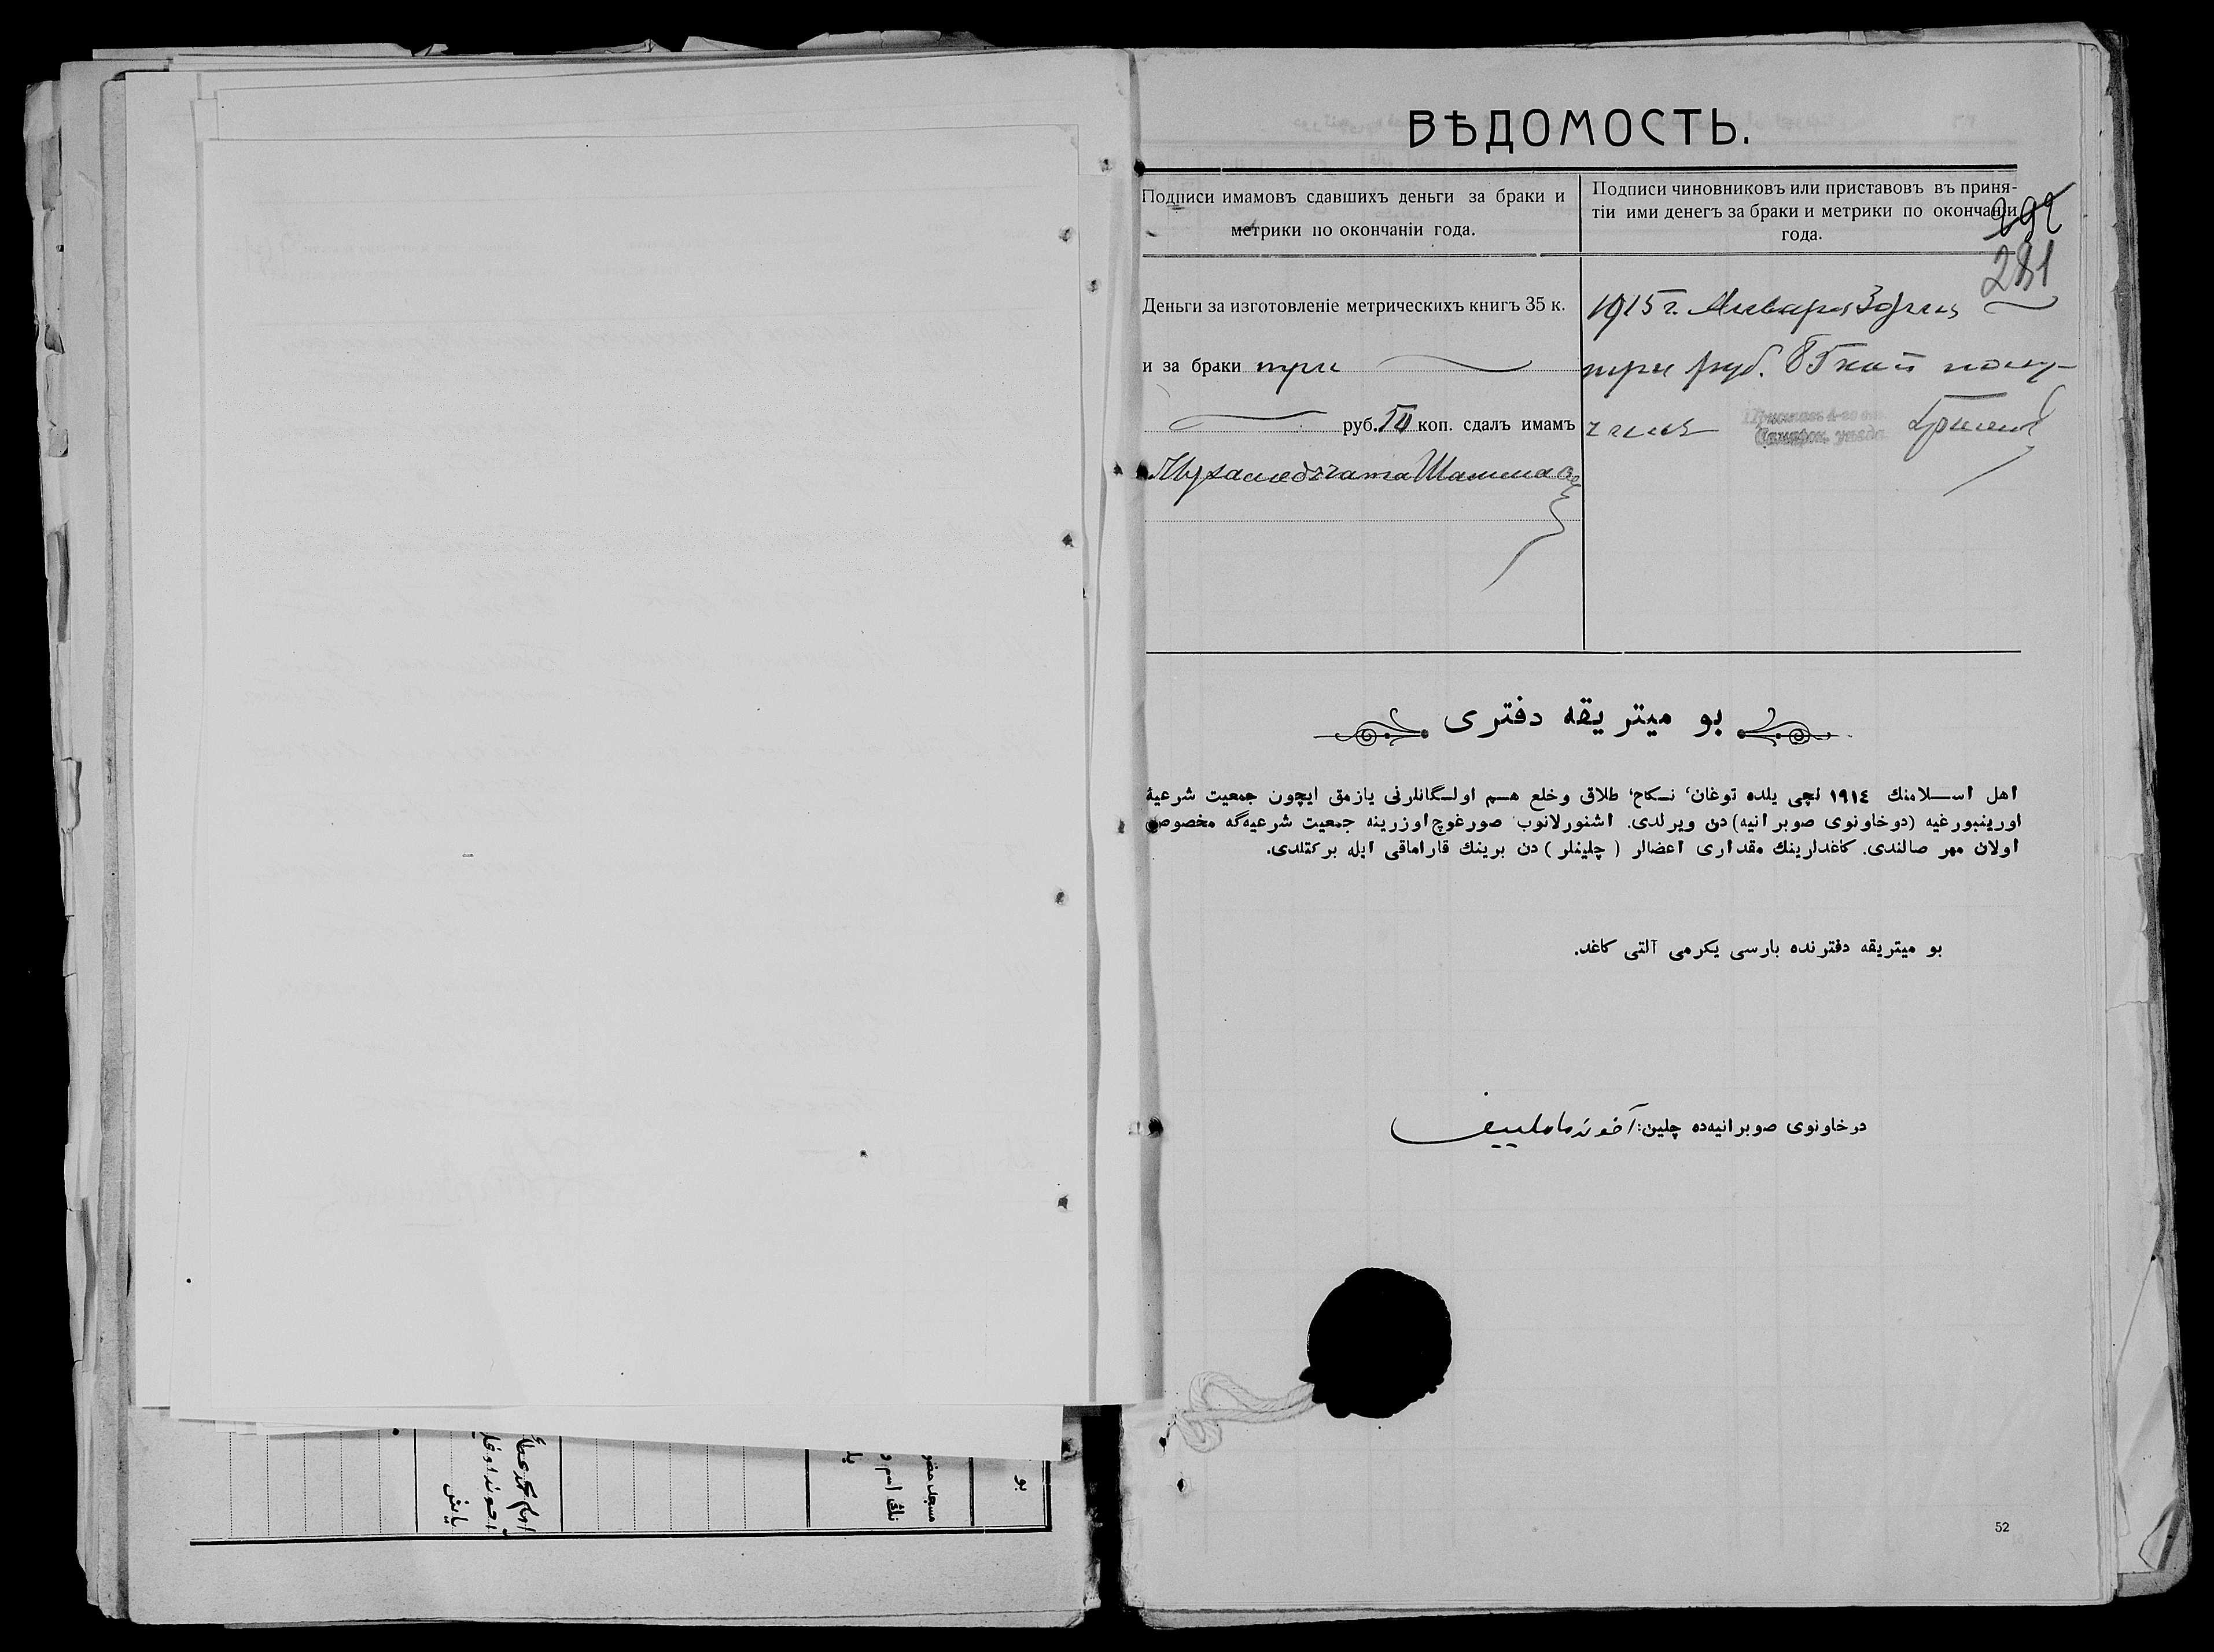 ВѢДОМОСТЬ.
Подписи имамовъ сдавшихъ деньги за браки и
метрики по окончаніи года.
Подписи чиновниковъ или приставовъ въ приня-
тіи ими денегъ за браки и метрики по окончаніи
года.
292
281
Деньги за изготовленіе метрическихъ книгъ 35 к.
и за браки три
руб. 50 коп. сдалъ имамъ
1915 г. Января 3 дня
три руб. 85 коп полу-
чилъ
Приставъ 4-го
Самарск. уѣзда
بو ميتريقه دفتری
اهل اسلامنك ١٩١٤ نچی يلده توغان، نكاح، طلاق وخلع هم اولگانلرنی يازمق ايچون جمعيت شرعيۀ
اورينبورغيه (دوخاونوی صوبرانيه) دن ويرلدی. اشنورلانوب صورغوچ اوزرينه جمعيت شرعيه‌گه مخصوص
اولان مهر صالندی. كاغدلرينك مقداری اعضالر (چلينلر) دن برينك قاراماقی ايله بركتلدی.
بو ميتريقه دفترنده بارسی يكرمی آلتی كاغد.
درخاونوی صوبرانيه‌ده چلين:
52
بو